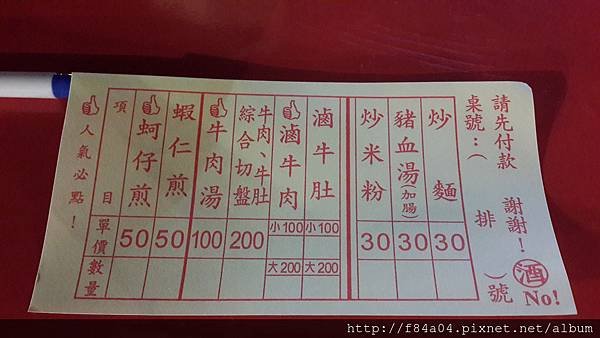 請先付款 謝謝！
桌號：（ 排 ）號
酒 No!
炒麵 30
豬血湯(加腸) 30
炒米粉 30
滷牛肚 小100 大200
滷牛肉 小100 大200
牛肉、牛肚綜合切盤 200
牛肉湯 100
蝦仁煎 50
蚵仔煎 50
項目 單價 數量
人氣必點！
http://f84a04.pixnet.net/album